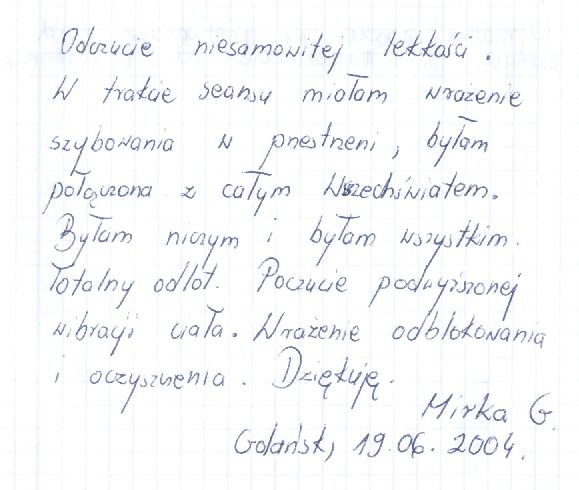 Odczucie niesamowitej lekkości.
W trakcie seansu miałam wrażenie
szybowania w przestrzeni, byłam
połączona z całym Wszechświatem.
Byłam niczym i byłam wszystkim.
Totalny odlot. Poczucie podwyższonej
wibracji ciała. Wrażenie odblokowania
i oczyszczenia. Dziękuję.
Mirka G.
Gdańsk, 19.06.2004.